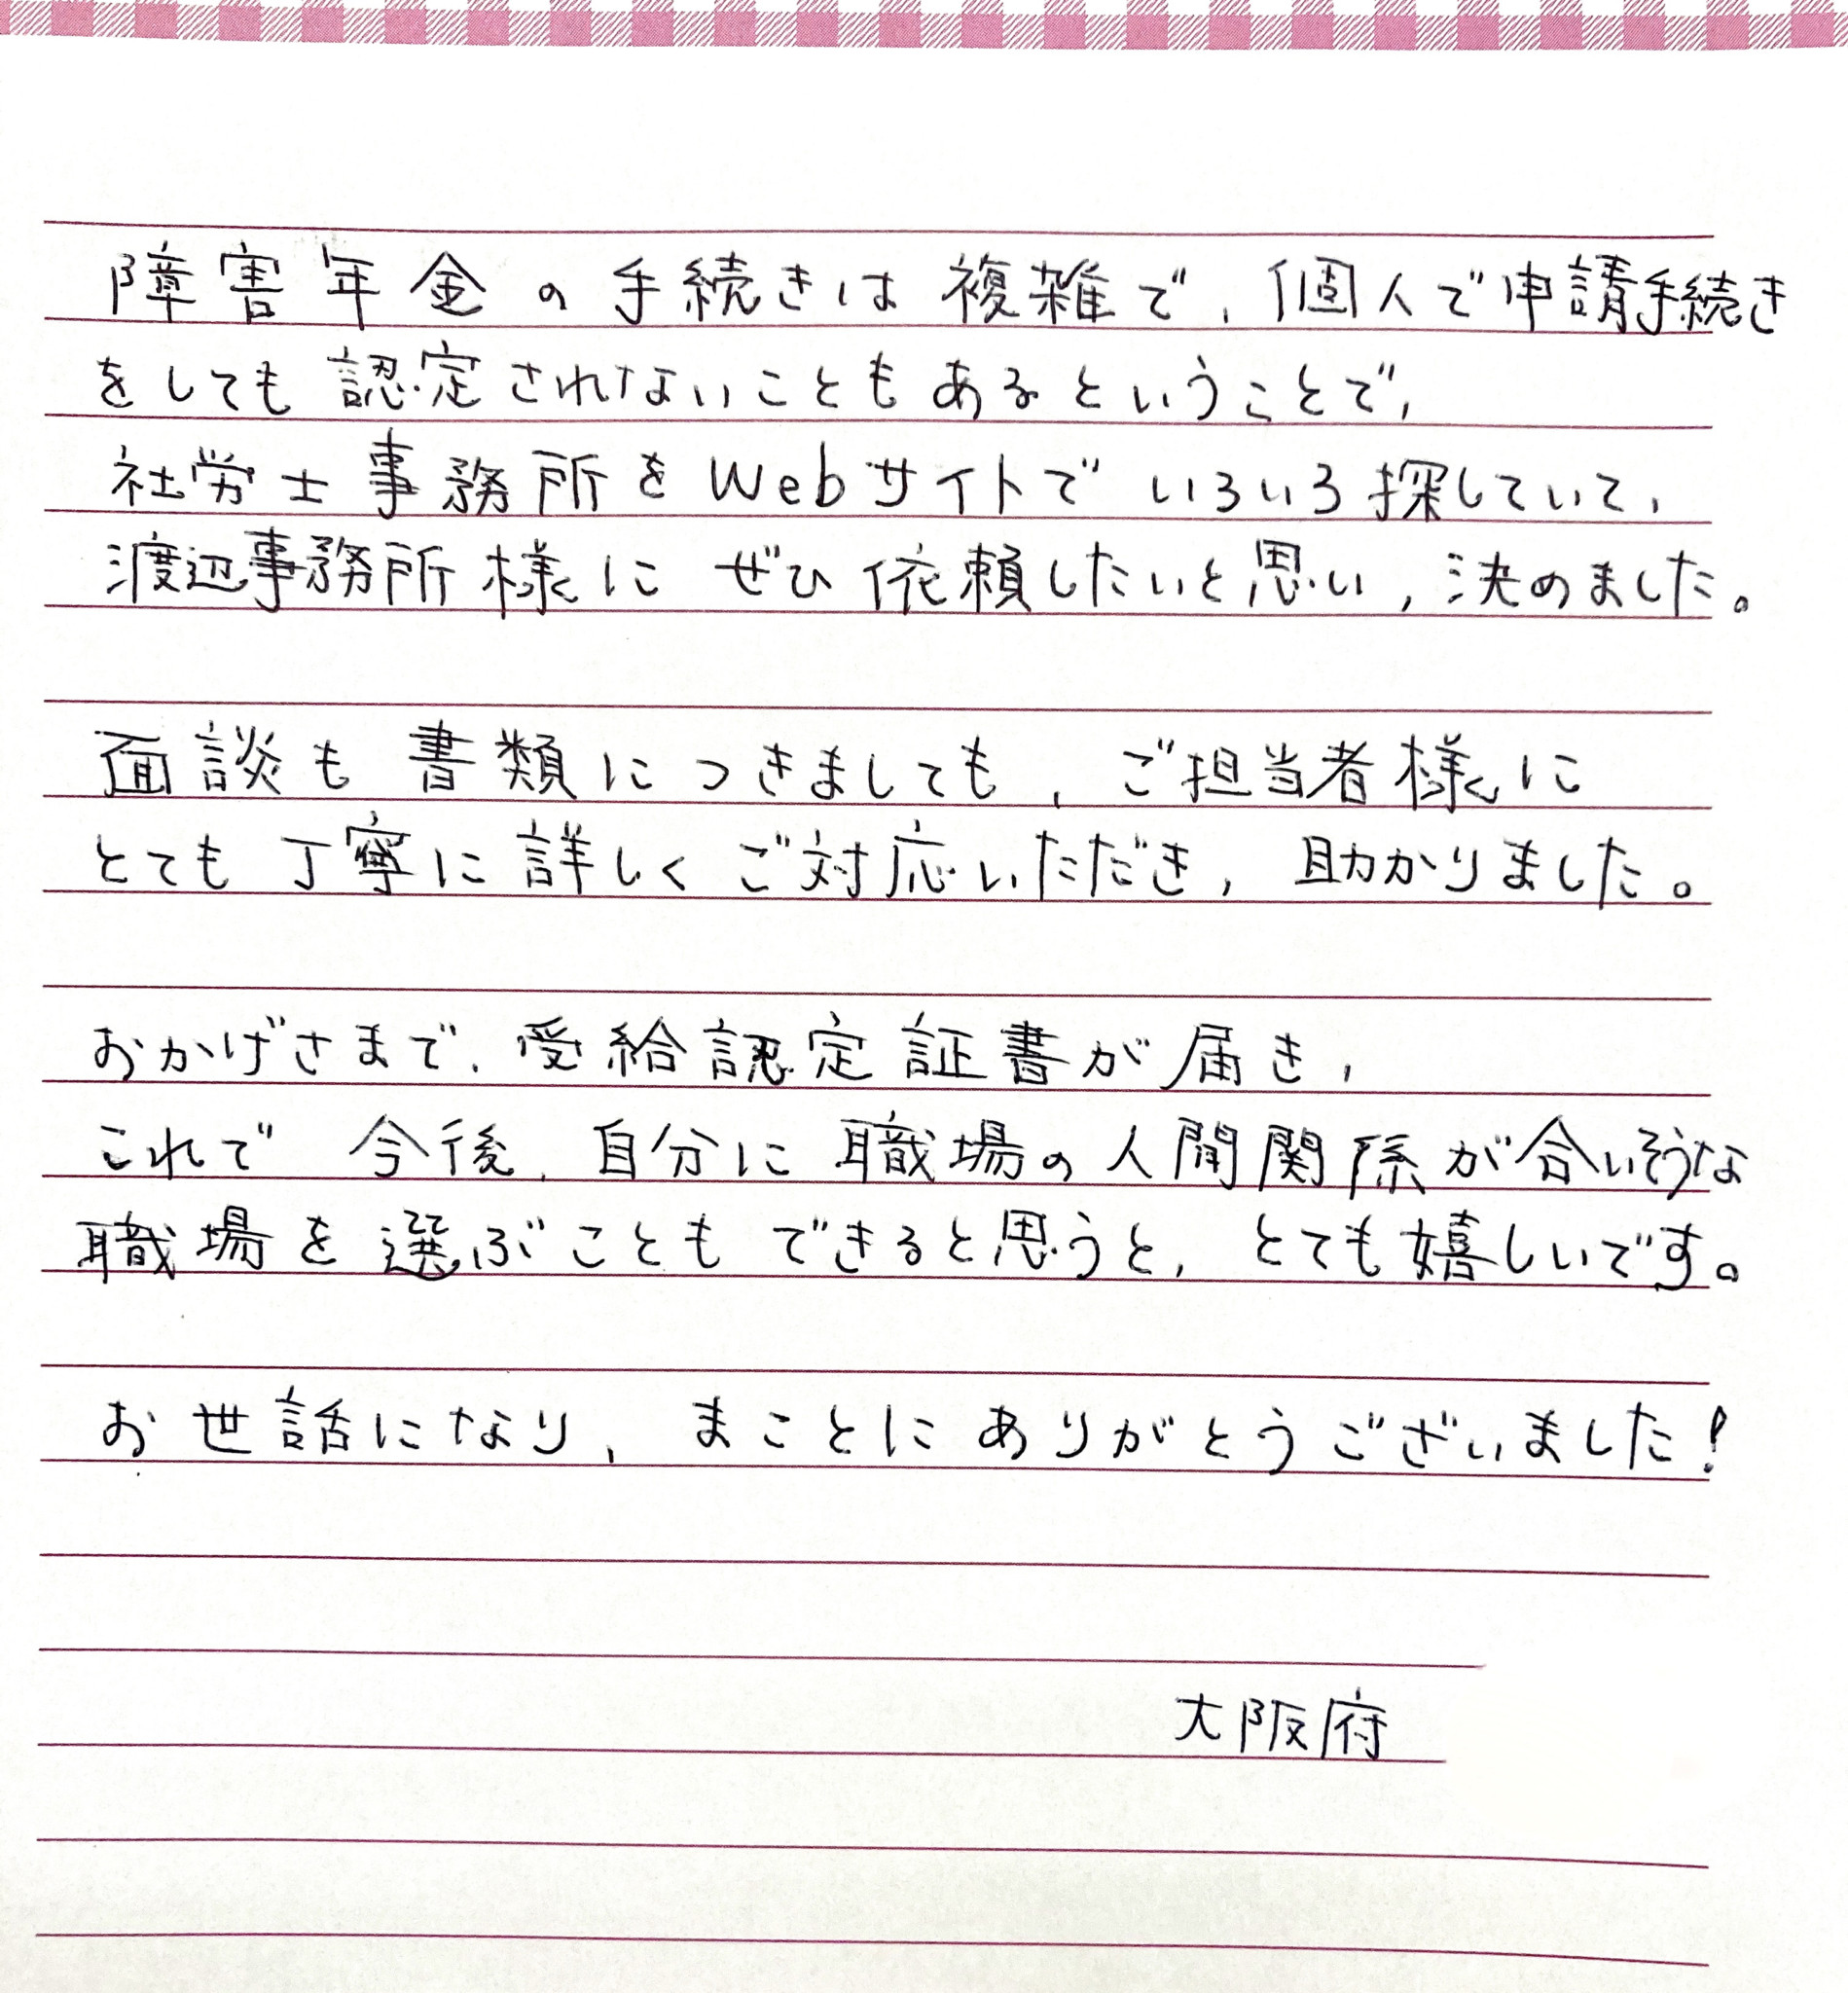 障害年金の手続きは複雑で、個人で申請手続き
をしても認定されないこともあるということで、
社労士事務所をWebサイトでいろいろ探していて、
渡辺事務所様にぜひ依頼したいと思い、決めました。
面談も書類につきましても、ご担当者様に
とても丁寧に詳しくご対応いただき、助かりました。
おかげさまで、受給認定証書が届き、
これで今後、自分に職場の人間関係が合いそうな
職場を選ぶこともできると思うと、とても嬉しいです。
お世話になり、まことにありがとうございました!
大阪府